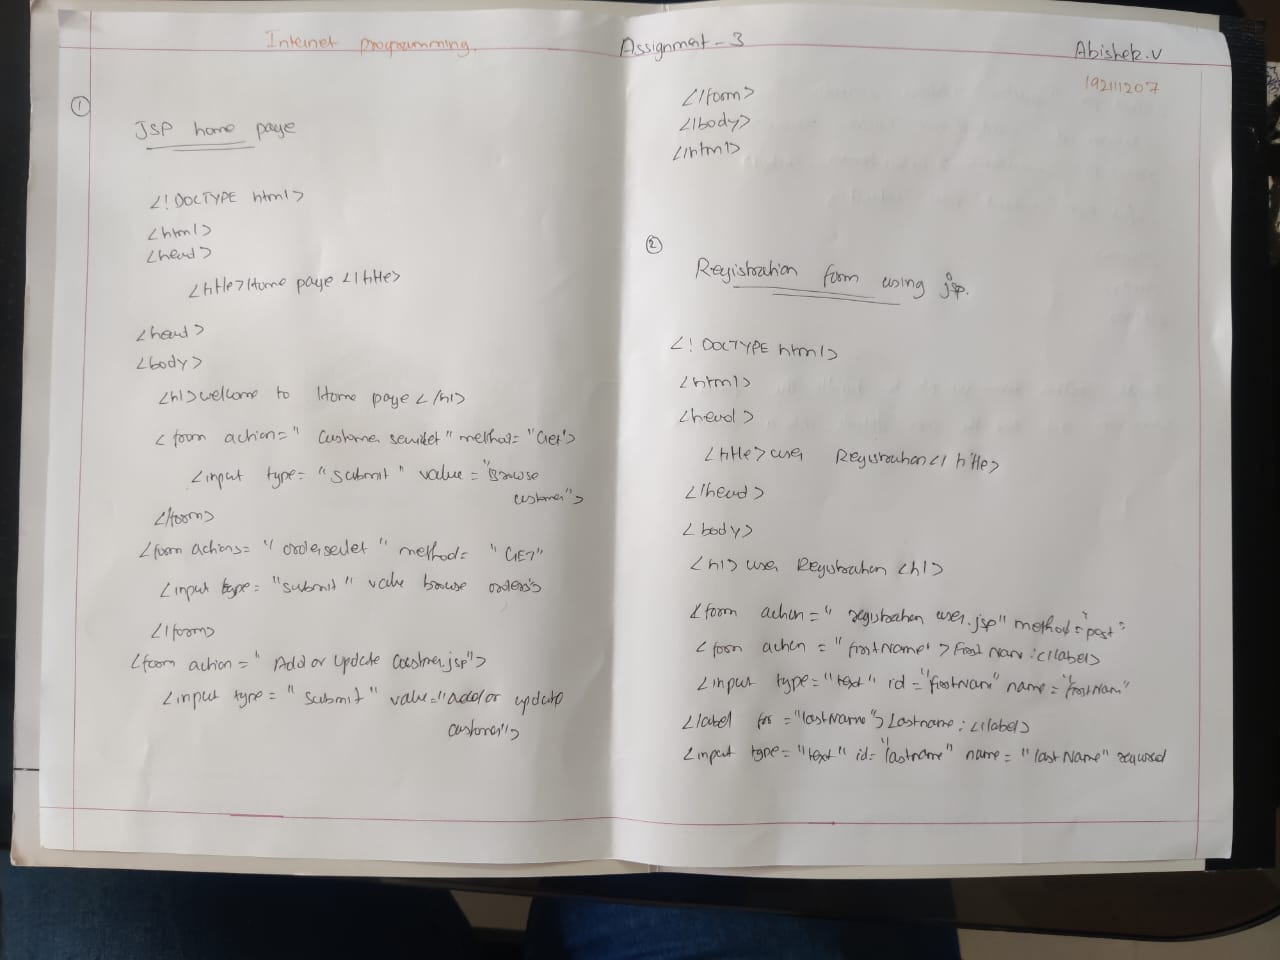 Internet programming. Assignment - 3 Abishek.V
192111207
①
JSP home page
<! DOCTYPE html>
<html>
<head>
<title>Home page </title>
<head>
<body>
<h1>welcome to Home page </h1>
<form action=" Customer servlet" method= "Get">
<input type= "submit" value = "Browse
customer">
</form>
<form actions= "/ orderservlet " method= "GET"
<input type= "submit" value browse orders">
</form>
<form action=" Add or update Costmer.jsp">
<input type= "submit" value="add/or update
customer">
</form>
</body>
</html>
②
Registration form using jsp.
<! DOCTYPE html>
<html>
<head>
<title> user Registration</ title>
</head>
<body>
<h1> user Registration <h1>
<form action=" registration user.jsp" method="post"
<form action = "firstName" > First Nam :</label>
<input type= "text" id ="firstNam" name = "firstNam"
<label for = "lastName"> Lastname: </label>
<input type= "text" id= "lastname" name= "last Name" required